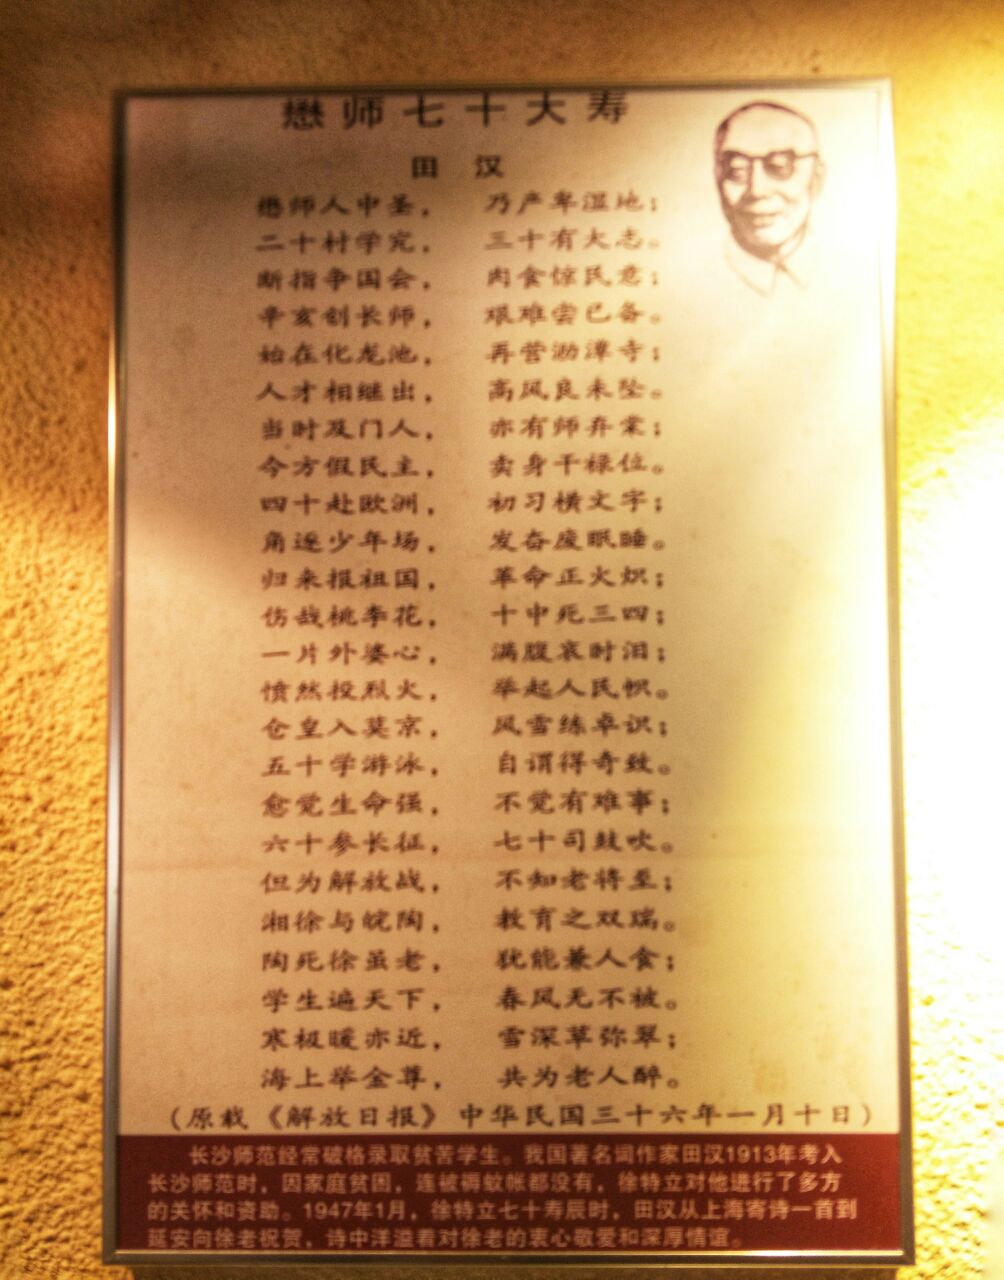 懋师七十大寿
田 汉
懋师人中圣， 乃产卑湿地；
二十村学究， 三十有大志。
断指争国会， 肉食惊民意；
辛亥创长师， 艰难尝已备。
始在化龙池， 再营泐潭寺；
人才相继出， 高风良未坠。
当时及门人， 亦有师弃棠；
今方假民主， 卖身干禄位。
四十赴欧洲， 初习横文字；
角逐少年场， 发奋废眠睡。
归来报祖国， 革命正火炽；
伤哉桃李花， 十中死三四；
一片外婆心， 满腹哀时泪；
愤然投烈火， 举起人民帜。
仓皇入莫京， 风雪练卓识；
五十学游泳， 自谓得奇致。
愈觉生命强， 不觉有难事；
六十参长征， 七十司鼓吹。
但为解放战， 不知老将至；
湘徐与皖陶， 教育之双瑞。
陶死徐虽老， 犹能兼人食；
学生遍天下， 春风无不被。
寒极暖亦近， 雪深草弥翠；
海上举金尊， 共为老人醉。
（原载《解放日报》中华民国三十六年一月十日）
长沙师范经常破格录取贫苦学生。我国著名词作家田汉1913年考入
长沙师范时，因家庭贫困，连被褥蚊帐都没有，徐特立对他进行了多方
的关怀和资助。1947年1月，徐特立七十寿辰时，田汉从上海寄诗一首到
延安向徐老祝贺，诗中洋溢着对徐老的衷心敬爱和深厚情谊。